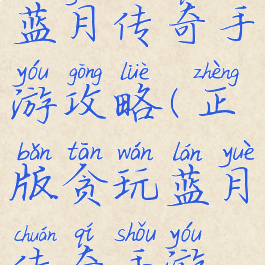 蓝月传奇手
yóu gōng lüè zhèng
游攻略(正
bǎn tān wán lán yuè
版贪玩蓝月
chuán qí shǒu yóu
传奇手游